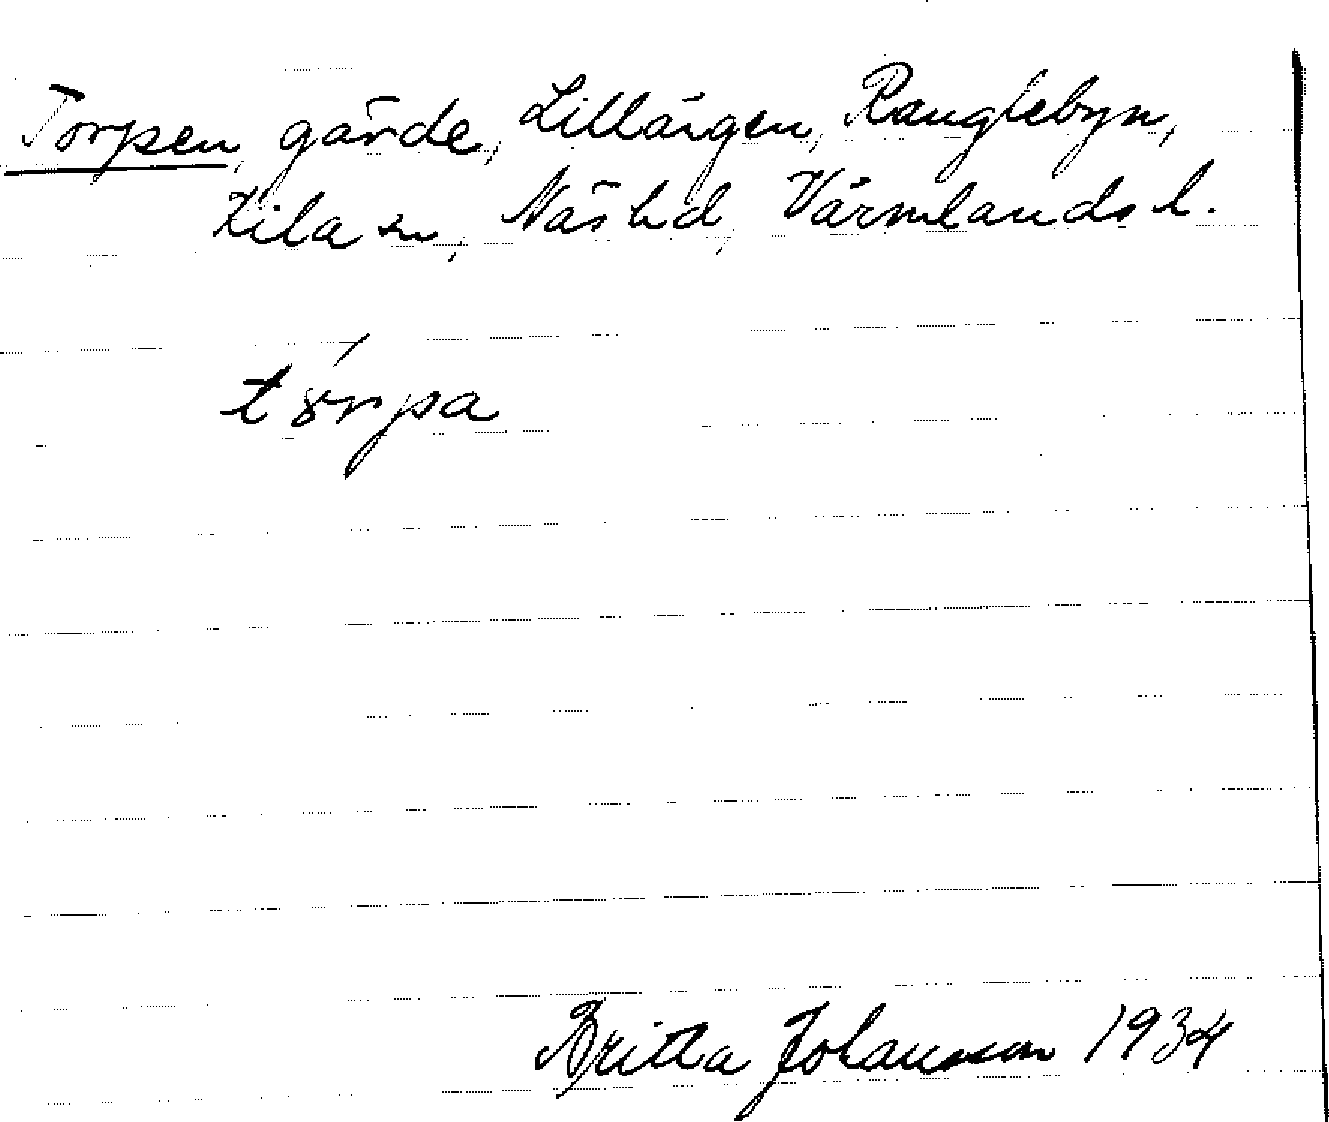 Torpen, gärde, Lillängen, Ranglebyn,
Kila sn, Näs hd, Värmlands l.
t8́rpa
Britta Johansson 1934